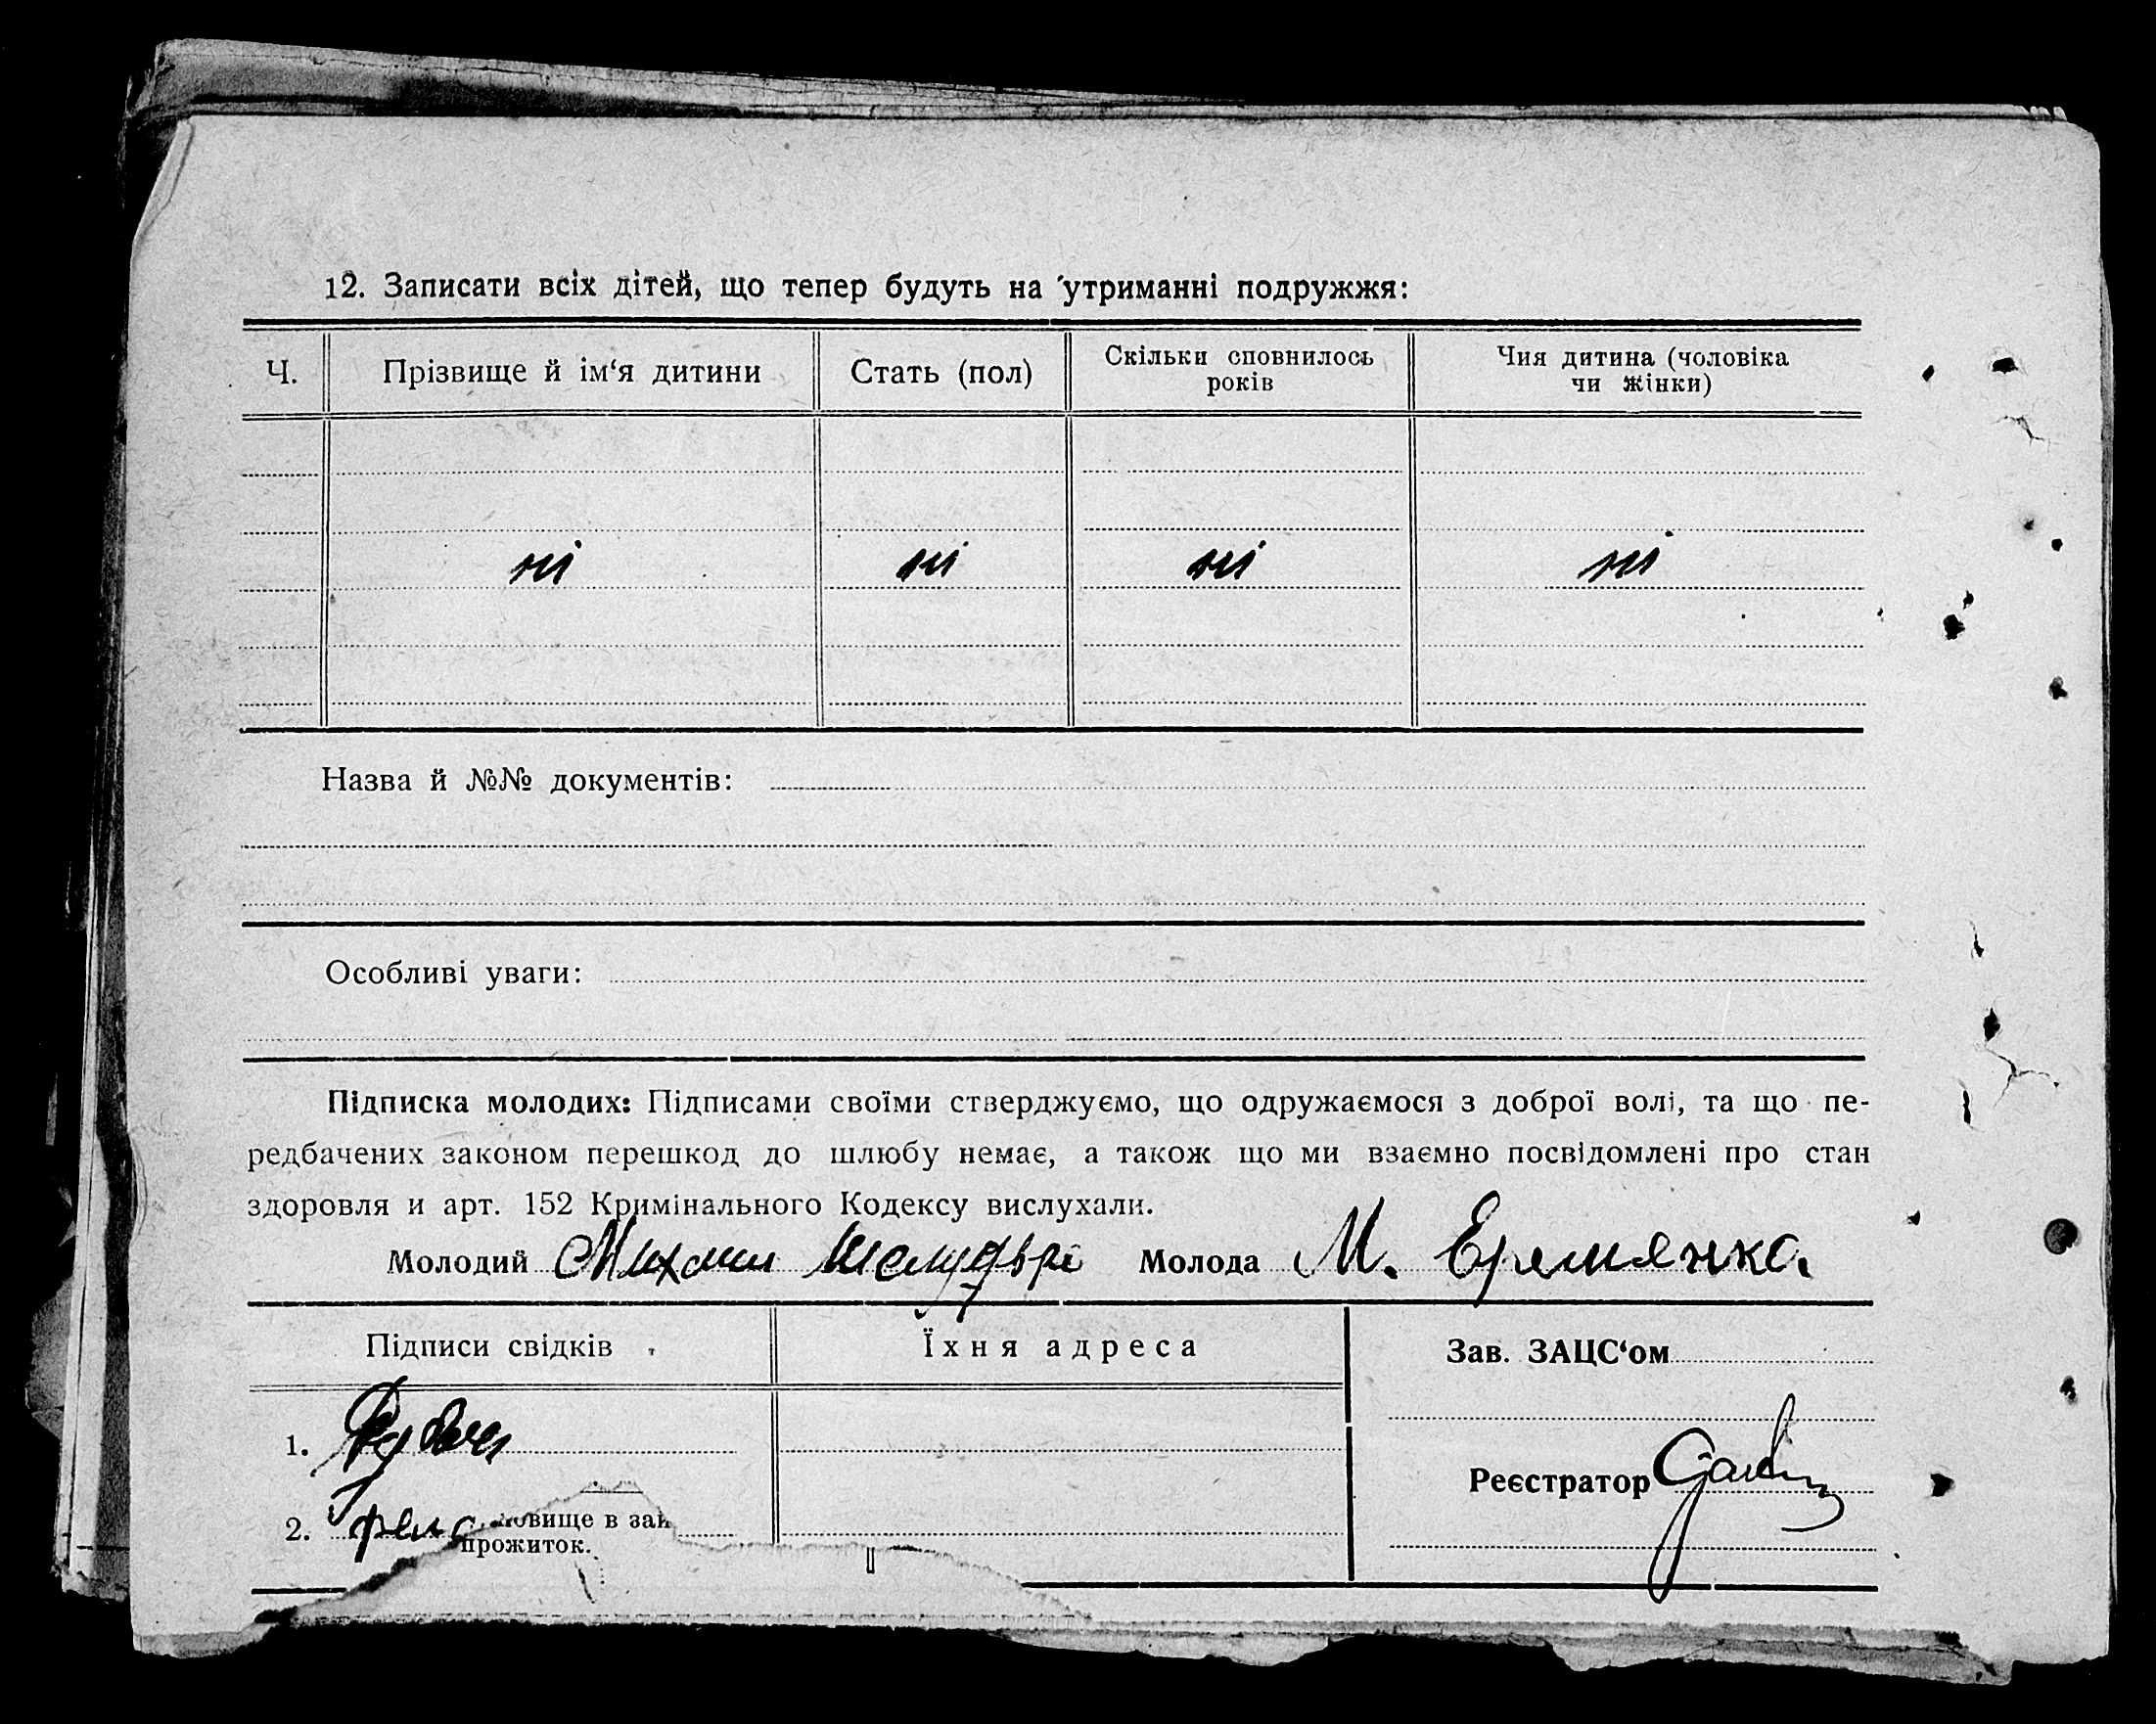 12. Записати всіх дітей, що тепер будуть на утриманні подружжя:
Ч.
Прізвище й ім‘я дитини
Стать (пол)
Скільки сповнилось
років
Чия дитина (чоловіка
чи жінки)
ні ні ні ні
Назва й №№ документів:
Особливі уваги:
Підписка молодих: Підписами своїми стверджуємо, що одружаємося з доброї волі, та що пе-
редбачених законом перешкод до шлюбу немає, а також що ми взаємно посвідомлені про стан
здоровля и арт. 152 Кримінального Кодексу вислухали.
Молодий Михаил Молода М. Еремянко.
Підписи свідків
Їхня адреса
Зав. ЗАЦС‘ом
1.
Реєстратор
2.
овище в зай
прожиток.